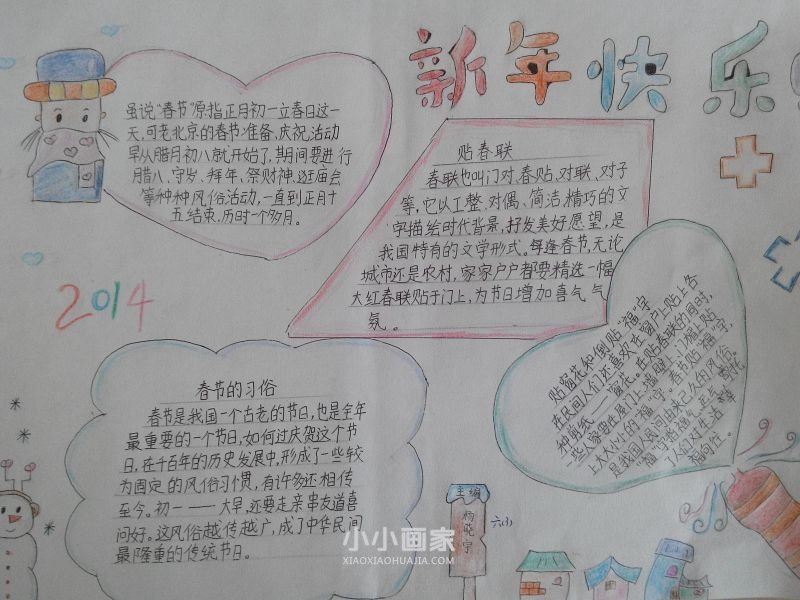 新年快乐
虽说“春节”原指正月初一立春日这一
天,可老北京的春节准备、庆祝活动
早从腊月初八就开始了,其间要进行
腊八、守岁、拜年、祭财神、逛庙会
等种种风俗活动,一直到正月十
五结束,历时一个多月。
贴春联
春联也叫门对、春贴、对联、对子
等,它以工整、对偶、简洁、精巧的文
字描绘时代背景,抒发美好愿望,是
我国特有的文学形式。每逢春节,无论
城市还是农村,家家户户都要精选一幅
大红春联贴于门上,为节日增加喜气气
氛。
2014
贴窗花和倒贴“福”字
在民间人们还喜欢在窗户上贴上各
种剪纸——窗花。在贴春联的同时,
一些人家要在屋门上、墙壁上、门楣上贴
上大大小小的“福”字。春节贴“福”字,
是我国民间由来已久的风俗。
“福”字指福气、福运,寄托
人们对生活
福向往。
春节的习俗
春节是我国一个古老的节日,也是全年
最重要的一个节日,如何过庆贺这个节
日,在千百年的历史发展中,形成了一些较
为固定的风俗习惯,有许多还相传
至今。初一——大早,还要走亲串友道喜
问好。这风俗越传越广,成了中华民间
最隆重的传统节日。
主编
杨晓宇
六(1)
小小画家
XIAOXIAOHUAJIA.COM